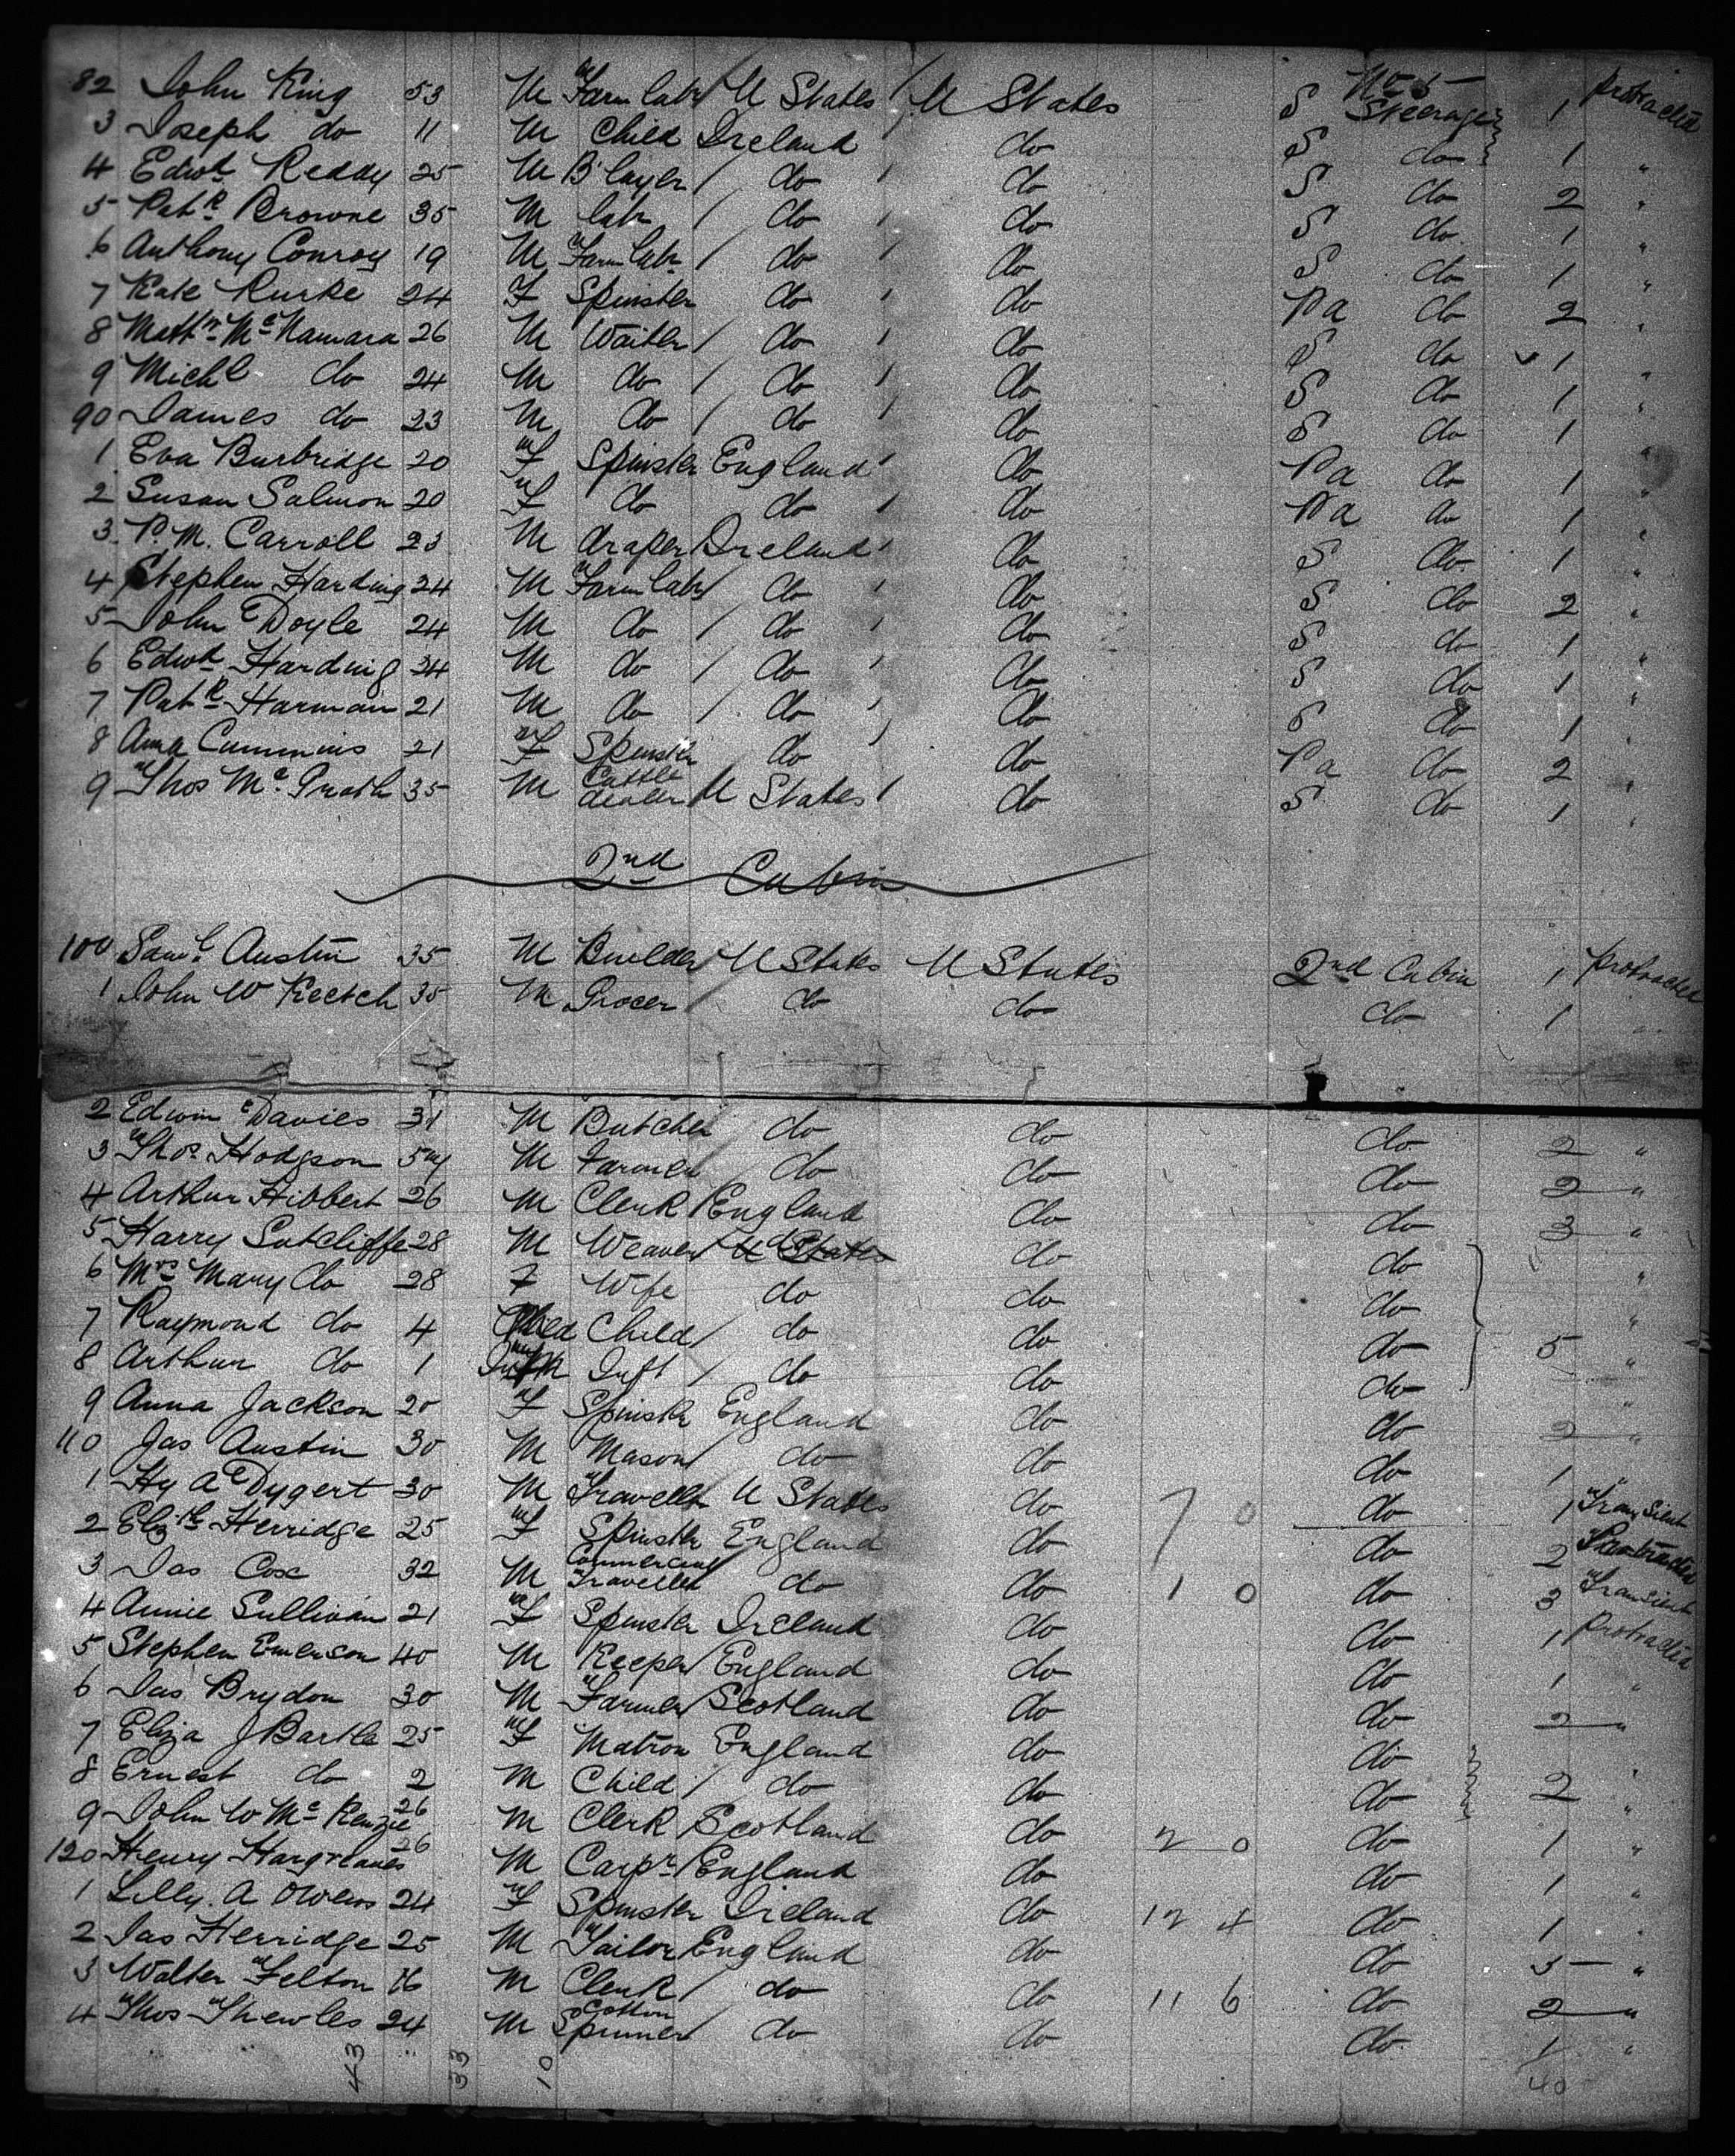 82 John King 53 M Farm labr U States U States S No 5 Steerage 1 Protracted
3 Joseph do 11 M Child Ireland do S do 1 "
4 Edwd Reddy 25 M B'layer do do S do 2 "
5 Patk Browne 35 M labr do do S do 1 "
6 Anthony Conroy 19 M Farm labr do do S do 1 "
7 Kate Rurke 24 F Spinster do do Pa do 2 "
8 Mattw McNamara 26 M Waiter do do S do 1 "
9 Michl do 24 M do do do S do 1 "
90 James do 23 M do do do S do 1 "
1 Eva Burbridge 20 F Spinster England do Pa do 1 "
2 Susan Salmon 20 F do do do Pa do 1 "
3 P. M. Carroll 23 M draper Ireland do S do 1 "
4 Stephen Harding 24 M Farm labr do do S do 2 "
5 John Doyle 24 M do do do S do 1 "
6 Edwd Harding 34 M do do do S do 1 "
7 Patk Harman 21 M do do do S do 1 "
8 Anna Cummins 21 F Spinster do do Pa do 2 "
9 Thos McGrath 35 M Cattle dealer U States do S do 1 "
2nd Cabin
100 Saml Austin 35 M Builder U States U States 2nd Cabin 1 Protracted
1 John W Keetch 35 M Grocer do do do 1 "
2 Edwin Davies 31 M Butcher do do do 2 "
3 Thos Hodgson 54 M Farmer do do do 2 "
4 Arthur Hibbert 26 M Clerk England do do 3 "
5 Harry Sutcliffe 28 M Weaver U States do do "
6 Mrs Mary do 28 F Wife do do do "
7 Raymond do 4 Child do do do 5 "
8 Arthur do 1 M Inft do do do "
9 Anna Jackson 20 F Spinster England do do 2 "
110 Jas Austin 30 M Mason do do do 1 "
1 Hy A Dygert 30 M Traveller U States do 7 0 do 1 Transient
2 Elizth Herridge 25 F Spinster England do do 2 Protracted
3 Jas Cox 32 M Commercial Traveller do do 1 0 do 3 Transient
4 Annie Sullivan 21 F Spinster Ireland do do 1 Protracted
5 Stephen Emerson 40 M Keeper England do do 1 "
6 Jas Brydon 30 M Farmer Scotland do do 2 "
7 Eliza J Bartle 25 F Matron England do do
8 Ernest do 2 M Child do do do 2 "
9 John W McKenzie 26 M Clerk Scotland do 2 0 do 1 "
120 Henry Hargreaves 26 M Carpr England do do 1 "
1 Lilly. A Owens 24 F Spinster Ireland do 12 4 do 1 "
2 Jas Herridge 25 M Tailor England do do 5 "
3 Walter Felton 16 M Clerk do do 11 6 do 2 "
4 Thos Thewles 24 M Cotton Spinner do do do 1 "
43 33 10 40